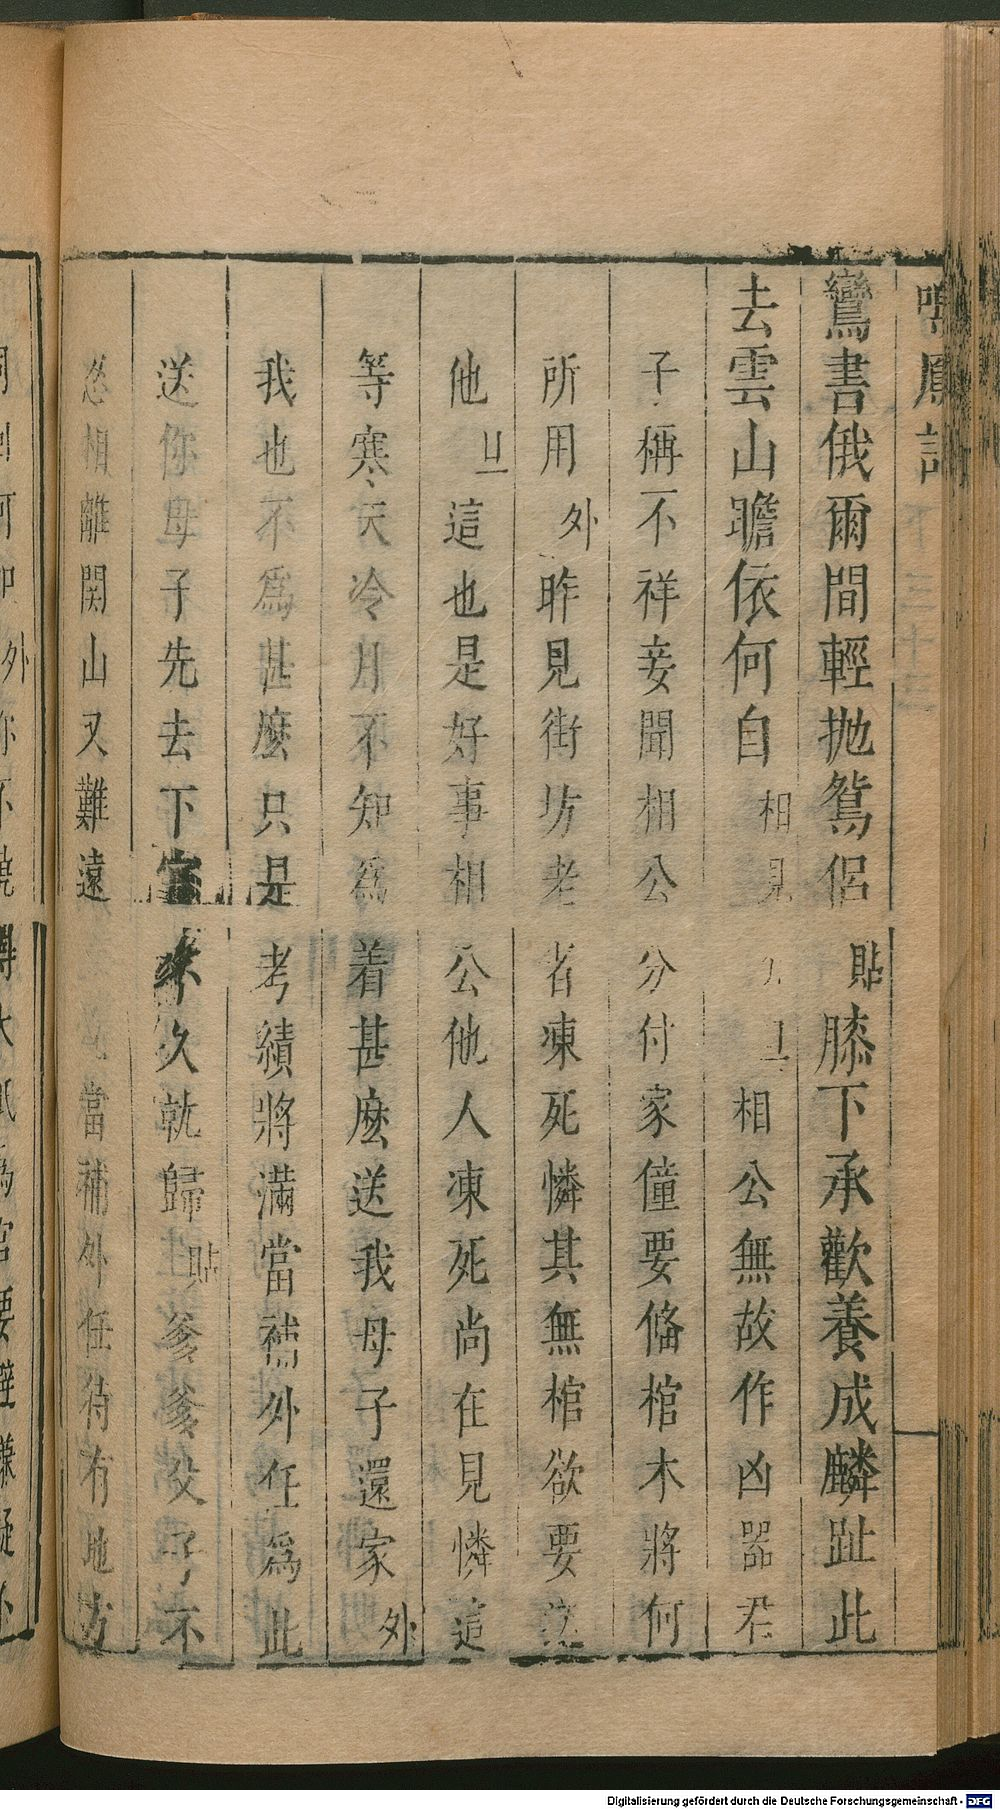 鸞書俄爾間輕拋鴛侶貼膝下承歡養成麟趾此
去雲山瞻依何自相見介旦相公無故作凶器君
子稱不祥妾聞相公分付家僮要俻棺木將何
所用外昨見街坊老者凍死憐其無棺欲要
他旦這也是好事相公他人凍死尚在見憐這
等寒天冷月不知爲着甚麽送我母子還家外
我也不爲甚麽只是考績將滿當補外任爲此
送你母子先去下官不久就歸貼爹爹没了不
忍相離関山又難遠當補外任待有地方
Digitalisierung gefördert durch die Deutsche Forschungsgemeinschaft - DFG